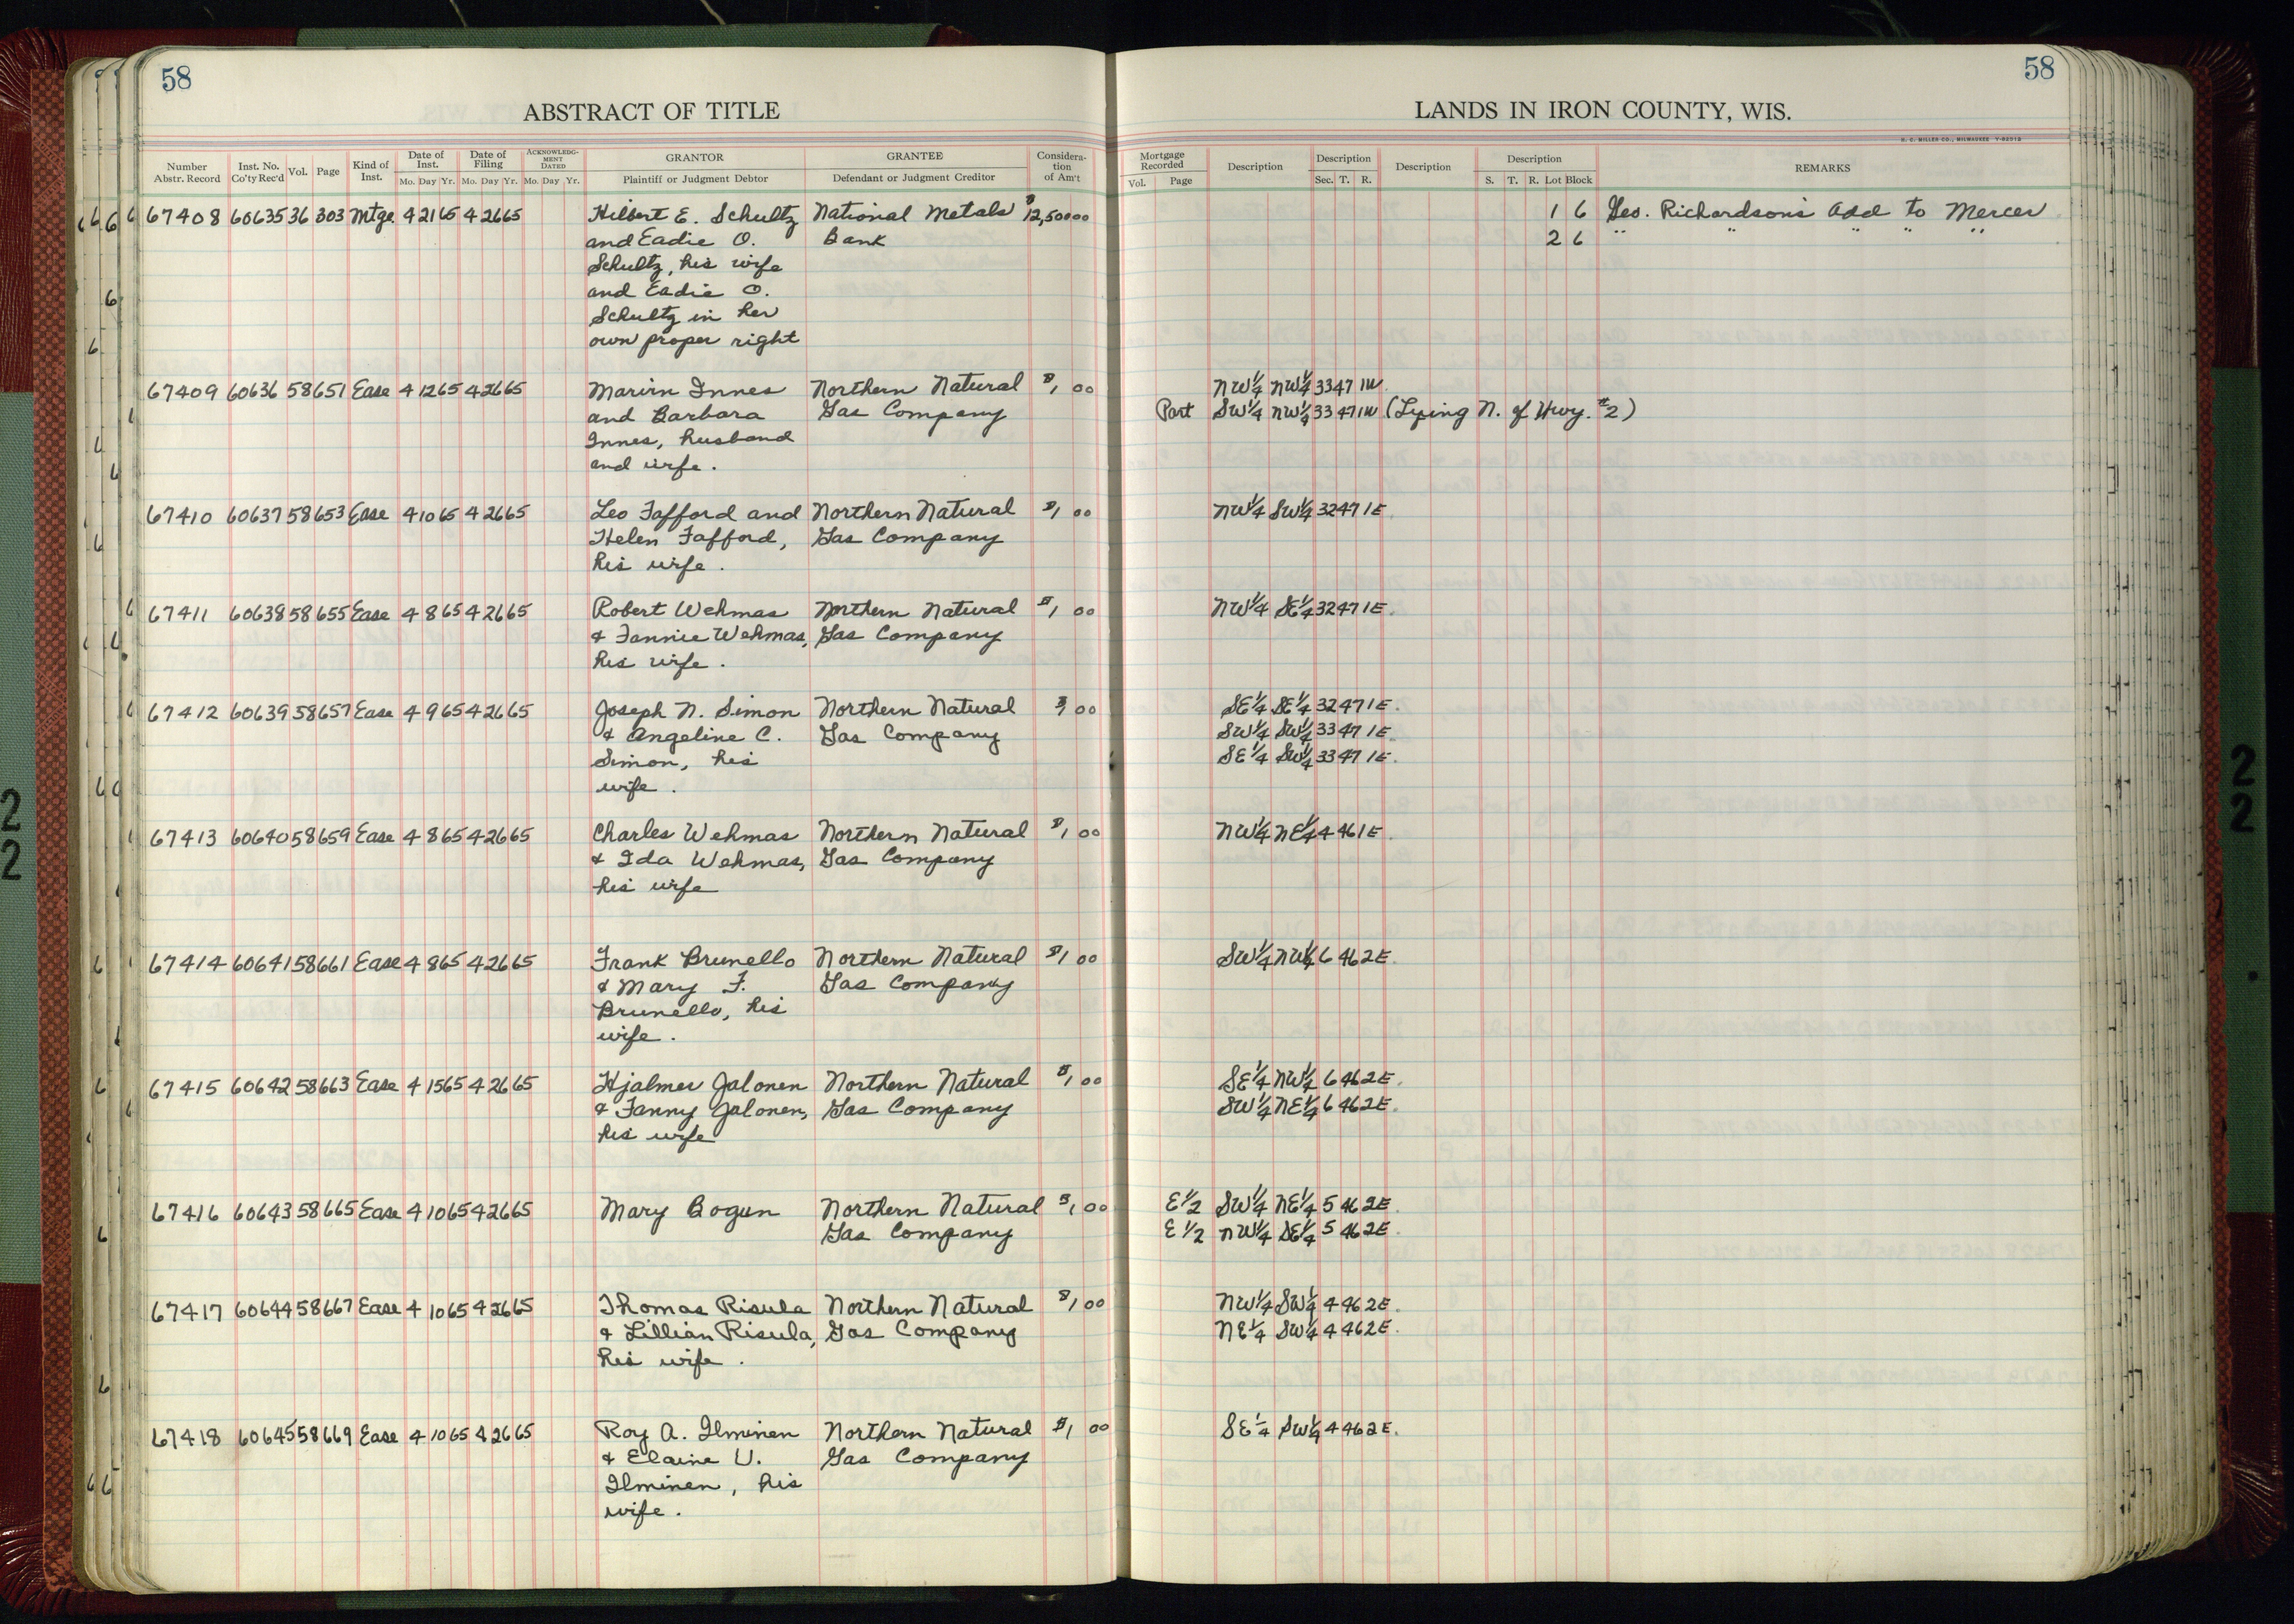 58
58
ABSTRACT OF TITLE
LANDS IN IRON COUNTY, WIS.
H. C. MILLER CO., MILWAUKEE
Number Abstr. Record Inst. No. Co'ty Rec'd Vol. Page Kind of Inst. Date of Inst. Mo. Day Yr. Date of Filing Mo. Day Yr. ACKNOWLEDGMENT DATED Mo. Day Yr. GRANTOR Plaintiff or Judgment Debtor GRANTEE Defendant or Judgment Creditor Consideration of Am't
Mortgage Recorded Vol. Page Description Description Sec. T. R. Description Description S. T. R. Lot Block REMARKS
67408 60635 36 303 Mtge 4 21 65 4 26 65 Hilbert E. Schultz National Metals $12,500 00 1 6 Geo. Richardson's Add to Mercer
and Eadie O. Bank 2 6 " " " " "
Schultz, his wife
and Eadie O.
Schultz in her
own proper right
67409 60636 58 651 Ease 4 12 65 4 26 65 Marvin Innes Northern Natural $1 00 NW1/4 NW1/4 33 47 1W
and Barbara Gas Company Part SW1/4 NW1/4 33 47 1W (Lying N. of Hwy. #2)
Innes, husband
and wife.
67410 60637 58 653 Ease 4 10 65 4 26 65 Leo Fafford and Northern Natural $1 00 NW1/4 SW1/4 32 47 1E.
Helen Fafford, Gas Company
his wife.
67411 60638 58 655 Ease 4 8 65 4 26 65 Robert Wehmas Northern Natural $1 00 NW1/4 SE1/4 32 47 1E.
& Fannie Wehmas, Gas Company
his wife.
67412 60639 58 657 Ease 4 9 65 4 26 65 Joseph N. Simon Northern Natural $1 00 SE1/4 SE1/4 32 47 1E.
& Angeline C. Gas Company SW1/4 SW1/4 33 47 1E.
Simon, his SE1/4 SW1/4 33 47 1E.
wife.
67413 60640 58 659 Ease 4 8 65 4 26 65 Charles Wehmas Northern Natural $1 00 NW1/4 NE1/4 4 46 1E.
& Ida Wehmas, Gas Company
his wife
67414 60641 58 661 Ease 4 8 65 4 26 65 Frank Brunello Northern Natural $1 00 SW1/4 NW1/4 6 46 2E.
& Mary F. Gas Company
Brunello, his
wife.
67415 60642 58 663 Ease 4 15 65 4 26 65 Hjalmer Jalonen Northern Natural $1 00 SE1/4 NW1/4 6 46 2E.
& Fanny Jalonen, Gas Company SW1/4 NE1/4 6 46 2E.
his wife
67416 60643 58 665 Ease 4 10 65 4 26 65 Mary Bogun Northern Natural $1 00 E1/2 SW1/4 NE1/4 5 46 2E.
Gas Company E1/2 NW1/4 SE1/4 5 46 2E.
67417 60644 58 667 Ease 4 10 65 4 26 65 Thomas Risula Northern Natural $1 00 NW1/4 SW1/4 4 46 2E.
& Lillian Risula, Gas Company NE1/4 SW1/4 4 46 2E.
his wife.
67418 60645 58 669 Ease 4 10 65 4 26 65 Roy A. Ilminen Northern Natural $1 00 SE1/4 SW1/4 4 46 2E.
& Elaine V. Gas Company
Ilminen, his
wife.
22
22